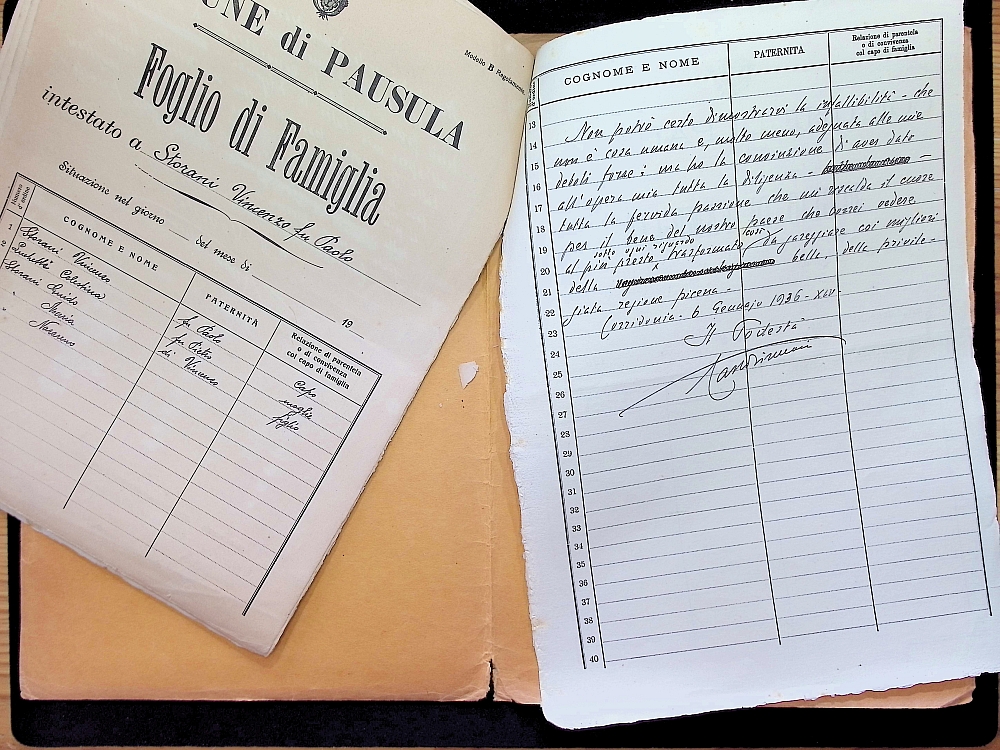 UNE di PAUSULA
Modello B Regolamento
Foglio di Famiglia
intestato a Storani Vincenzo fu Paolo
Situazione nel giorno del mese di 19
Numero d'ordine
COGNOME E NOME
PATERNITÀ
Relazione di parentela
o di convivenza
col capo di famiglia
1 Storani Vincenzo fu Paolo Capo
2 Celestina fu Pietro moglie
Storani Guido di Vincenzo figlio
" Maria
" Nazzareno
COGNOME E NOME
PATERNITA
Relazione di parentela
o di convivenza
col capo di famiglia
13
14 Non potrò certo dimostrarvi la infallibilità - che
15 non è cosa umana e, molto meno, adeguata alle mie
16 deboli forze: ma ho la convinzione di aver dato
17 all'opera mia tutta la diligenza -
18 tutta la fervida passione che mi riscalda il cuore
19 per il bene del nostro paese che vorrei vedere
sotto ogni riguardo così
20 al più presto trasformato da gareggiare coi migliori
21 della bella, della privile-
22 giata regione picena -
23 Corridonia - 6 Gennaio 1936 - XIV
24 Il Podestà
25
26
27
28
29
30
31
32
33
34
35
36
37
38
39
40